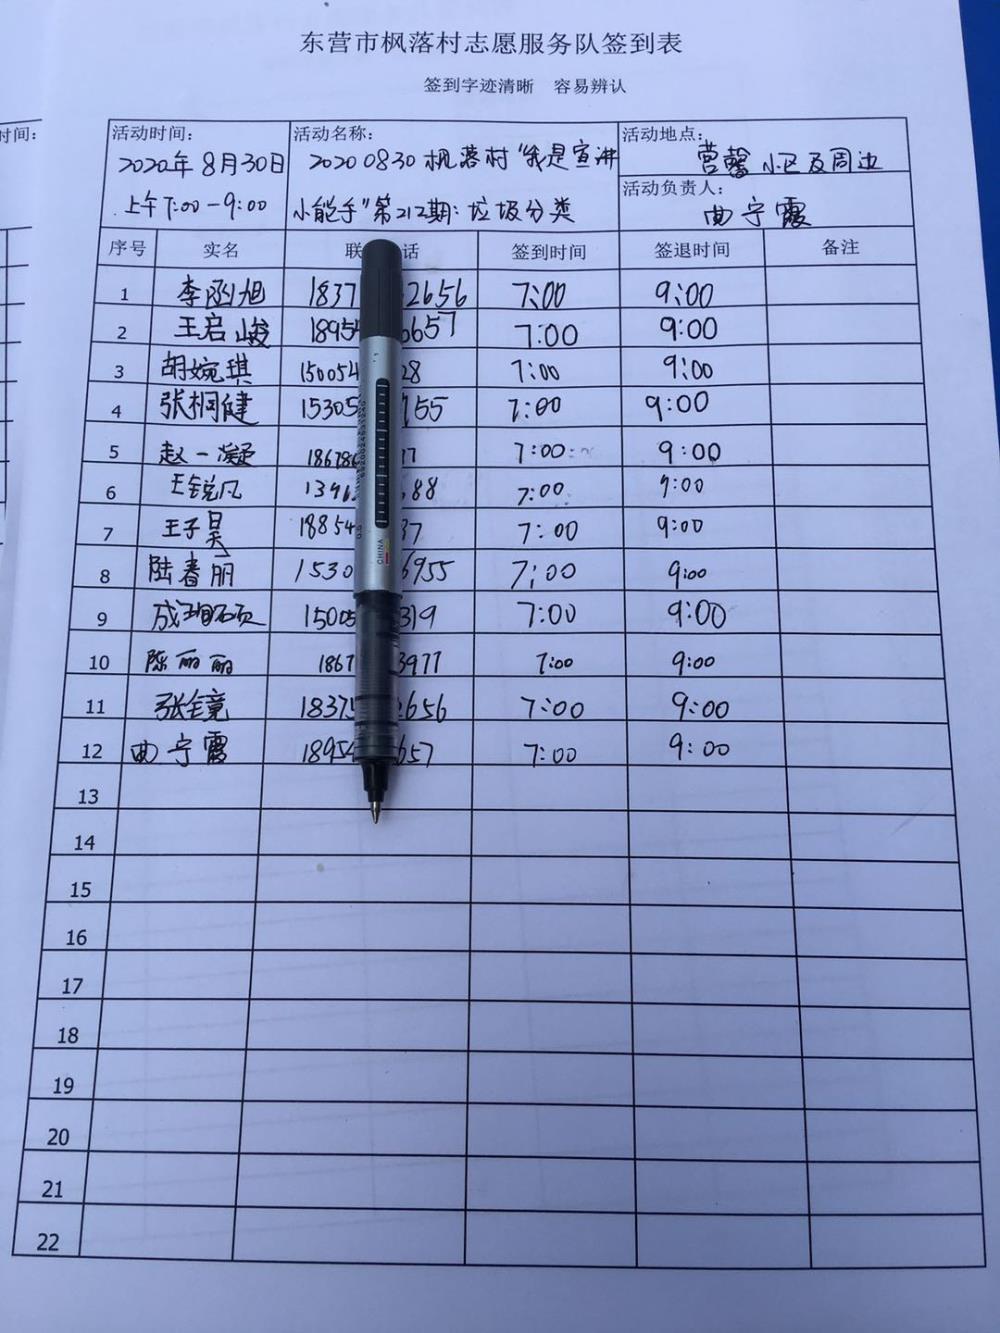 东营市枫落村志愿服务队签到表
签到字迹清晰 容易辨认
时间:
活动时间: 活动名称: 活动地点:
2020年8月30日 20200830枫落村"我是宣讲 营馨小区及周边
上午7:00-9:00 小能手"第212期:垃圾分类 活动负责人:
曲宁霞
序号 实名 联 话 签到时间 签退时间 备注
1 李函旭 1837 2656 7:00 9:00
2 王启峻 18954 6657 7:00 9:00
3 胡婉琪 150054 28 7:00 9:00
4 张桐健 15305 755 7:00 9:00
5 赵一凝 186786 7 7:00 9:00
6 王锐凡 1396 88 7:00 9:00
7 王子昊 18854 37 7:00 9:00
8 陆春丽 1530 6955 7:00 9:00
9 15005 319 7:00 9:00
10 陈丽丽 1867 3977 7:00 9:00
11 张镜 18375 2656 7:00 9:00
12 曲宁霞 18954 657 7:00 9:00
13
14
15
16
17
18
19
20
21
22
CHINA